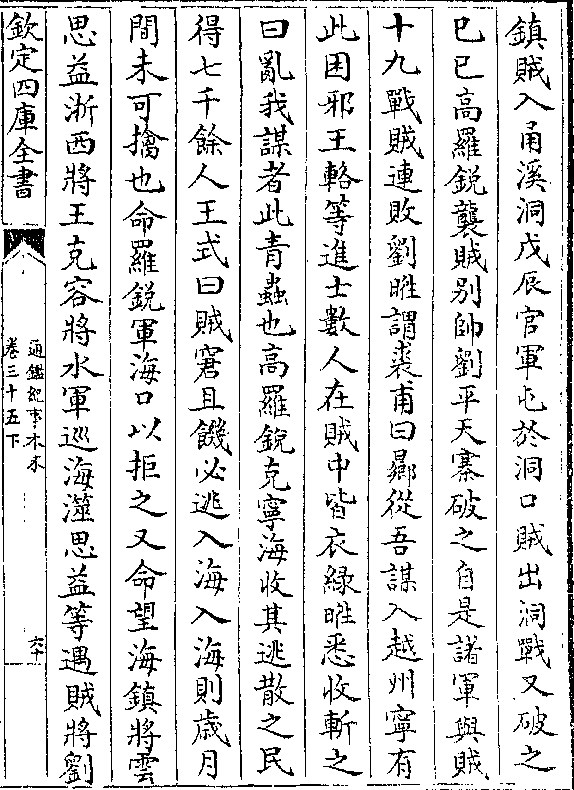 鎮賊入甬溪洞戊辰官軍屯於洞口賊出洞戰又破之
己巳高羅鋭襲賊别帥劉平天寨破之自是諸軍與賊
十九戰賊連敗劉暀謂裘甫曰曏從吾謀入越州寧有
此困邪王輅等進士數人在賊中皆衣緑暀悉收斬之
曰亂我謀者此青蟲也高羅鋭克寧海收其逃散之民
得七千餘人王式曰賊窘且饑必逃入海入海則歲月
間未可擒也命羅鋭軍海口以拒之又命望海鎮將雲
思益浙西將王克容將水軍巡海澨思益等遇賊將劉
欽定四庫全書
通鑑紀事本末
卷三十五下
六十